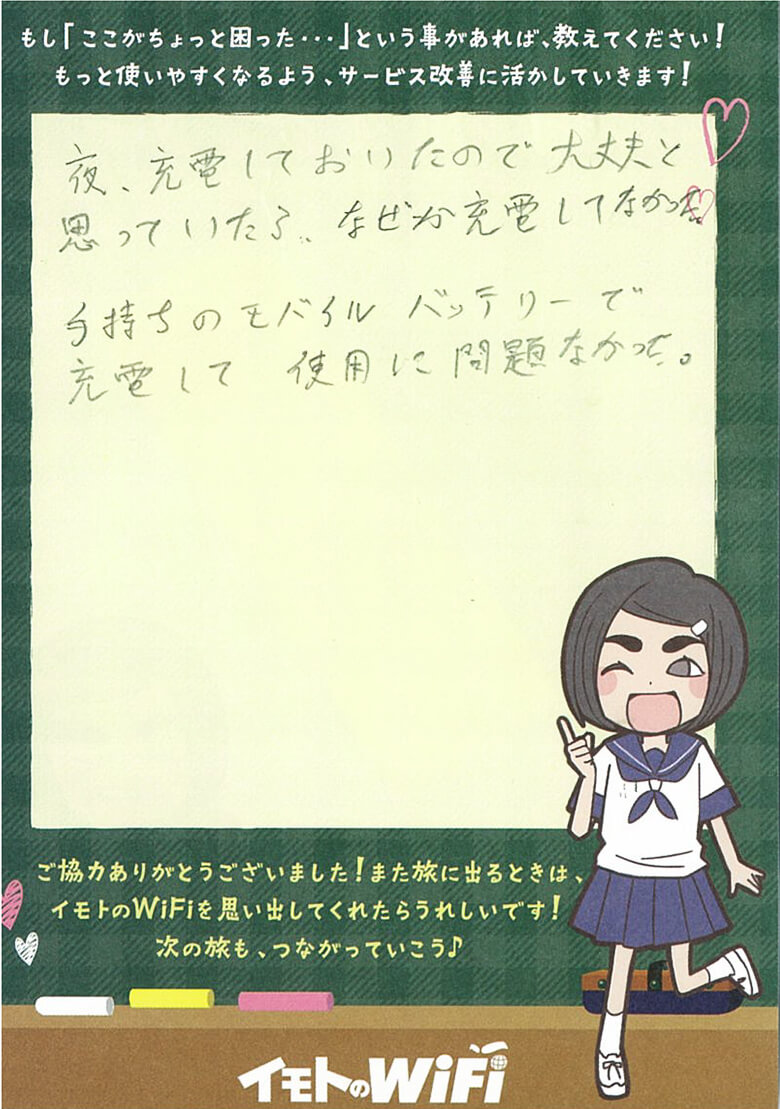 もし「ここがちょっと困った・・・」という事があれば、教えてください!
もっと使いやすくなるよう、サービス改善に活かしていきます!
夜、充電しておいたので大丈夫と
思っていたら、なぜか充電してなかった。
手持ちのモバイルバッテリーで
充電して 使用に問題なかった。
ご協力ありがとうございました!また旅に出るときは、
イモトのWiFiを思い出してくれたらうれしいです!
次の旅も、つながっていこう♪
イモトのWiFi